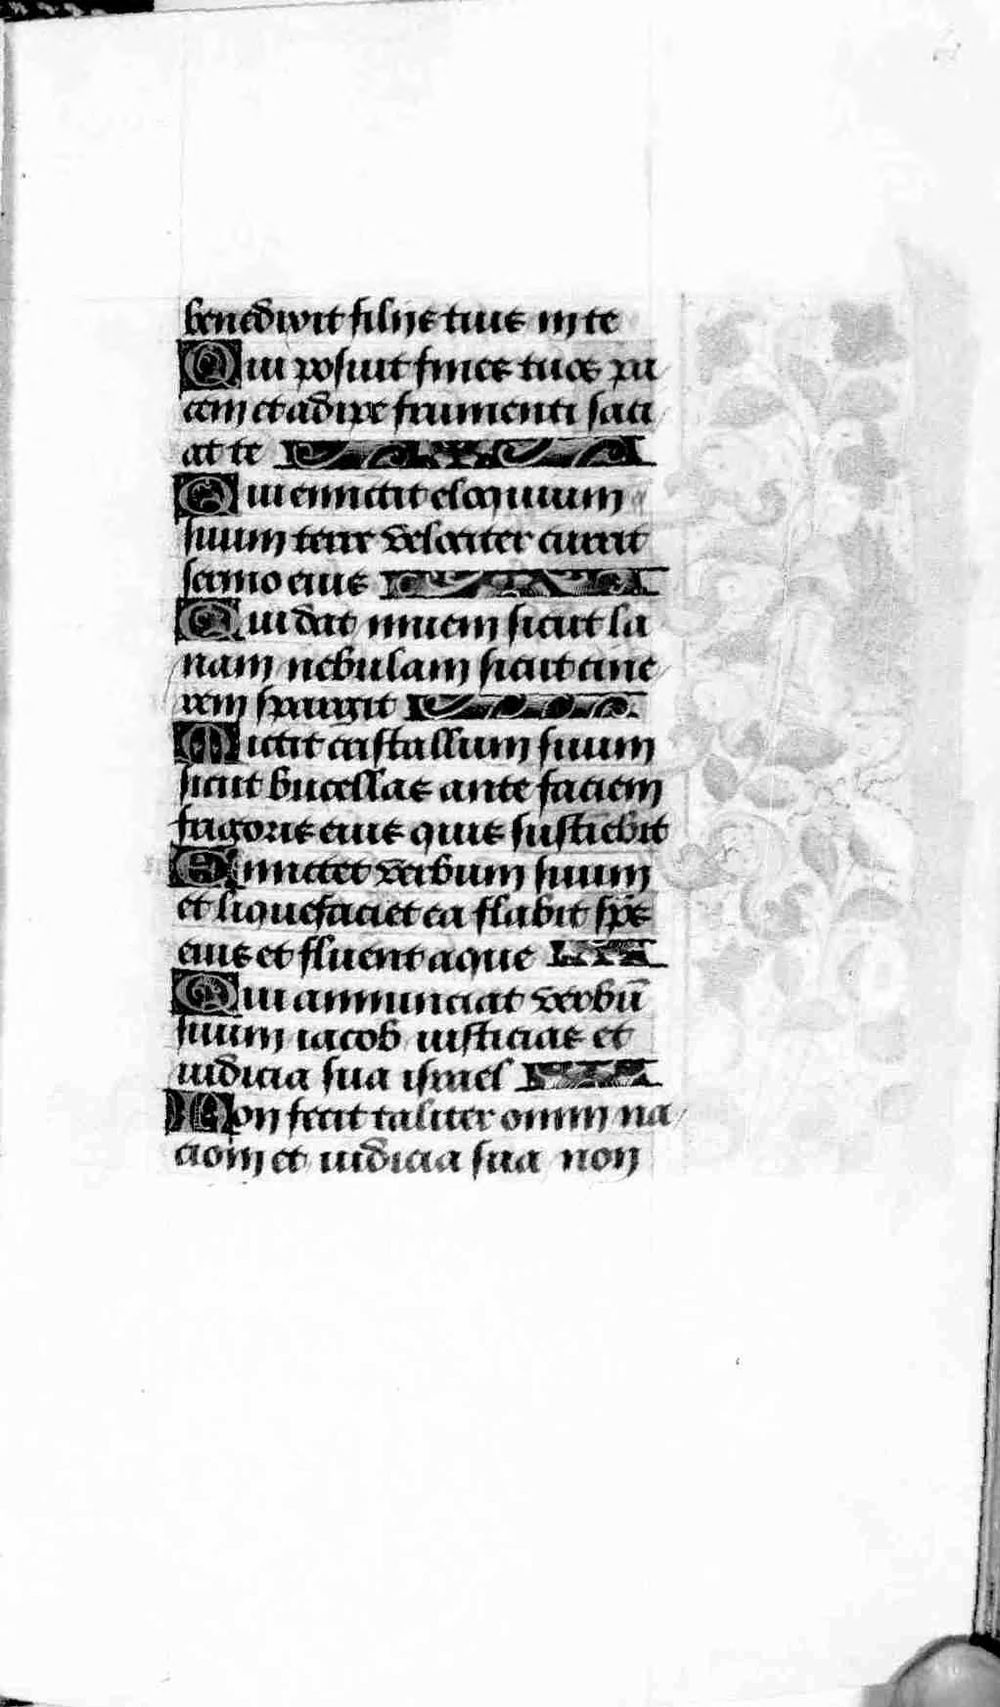 benedixit filiis tuis in te
Qui posuit fines tuos pa
cem et adipe frumenti saci
at te
Qui emittit eloquium
suum terre velociter currit
sermo eius
Qui dat nivem sicut la
nam nebulam sicut cine
rem spargit
Mittit cristallum suum
sicut bucellas ante faciem
frigoris eius quis sustiebit
Emittet verbum suum
et liquefaciet ea flabit sps
eius et fluent aque
Qui annunciat verbū
suum iacob iusticias et
iudicia sua israel
Non fecit taliter omni na
cioni et iudicia sua non